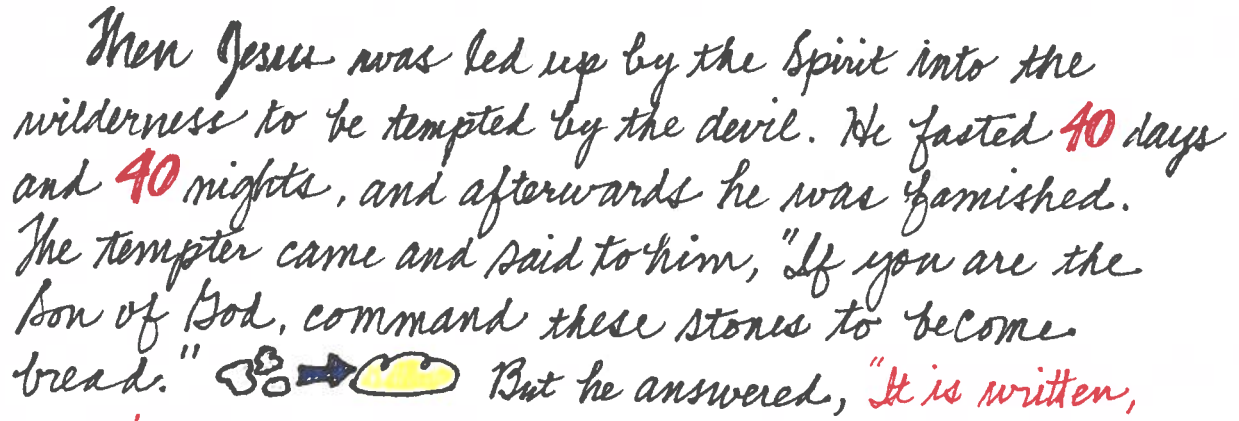 Then Jesus was led up by the Spirit into the
wilderness to be tempted by the devil. He fasted 40 days
and 40 nights, and afterwards he was famished.
The tempter came and said to him, "If you are the
Son of God, command these stones to become
bread." But he answered, "It is written,